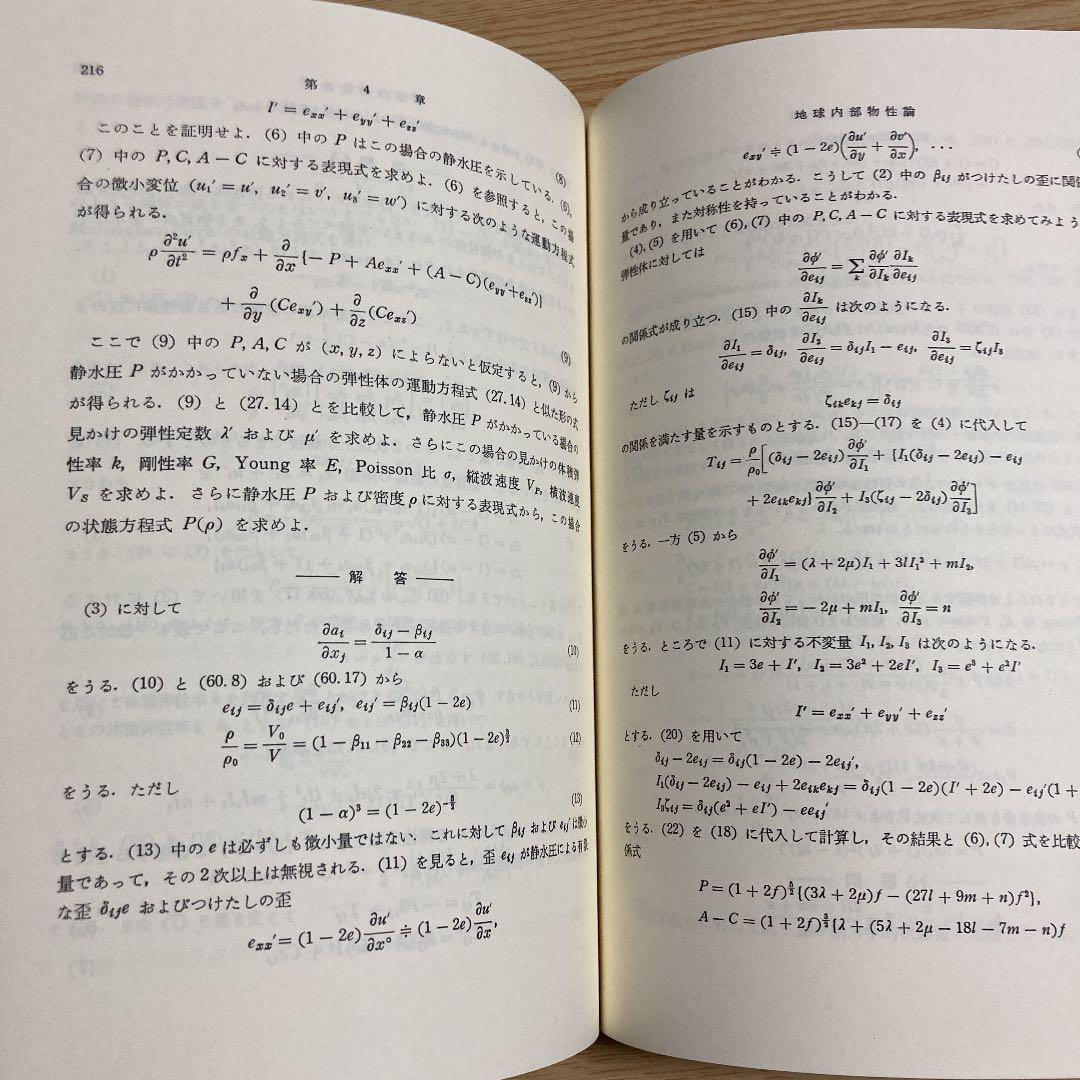 216
第 4 章
I′ = exx′ + eyy′ + ezz′
(8)
このことを証明せよ. (6) 中の P はこの場合の静水圧を示している. (6),
(7) 中の P, C, A − C に対する表現式を求めよ. (6) を参照すると, この場
合の微小変位 (u₁′ = u′, u₂′ = v′, u₃′ = w′) に対する次のような運動方程式
が得られる.
ρ ∂²u′/∂t² = ρfx + ∂/∂x{− P + Aexx′ + (A − C)(eyy′+ezz′)}
+ ∂/∂y (Cexy′) + ∂/∂z (Cexz′)
(9)
ここで (9) 中の P, A, C が (x, y, z) によらないと仮定すると, (9) から
静水圧 P がかかっていない場合の弾性体の運動方程式 (27.14) と似た形の式
が得られる. (9) と (27.14) とを比較して, 静水圧 P がかかっている場合の
見かけの弾性定数 λ′ および μ′ を求めよ. さらにこの場合の見かけの体積弾
性率 k, 剛性率 G, Young 率 E, Poisson 比 σ, 縦波速度 VP, 横波速度
VS を求めよ. さらに静水圧 P および密度 ρ に対する表現式から, この場合
の状態方程式 P(ρ) を求めよ.
—— 解 答 ——
(3) に対して
∂ai/∂xj = (δij − βij)/(1 − α) (10)
をうる. (10) と (60.8) および (60.17) から
eij = δije + eij′, eij′ = βij(1 − 2e) (11)
ρ/ρ₀ = V₀/V = (1 − β₁₁ − β₂₂ − β₃₃)(1 − 2e)^(3/2) (12)
をうる. ただし
(1 − α)³ = (1 − 2e)^(−3/2) (13)
とする. (13) 中の e は必ずしも微小量ではない. これに対して βij および eij′ は微小
量であって, その2次以上は無視される. (11) を見ると, 歪 eij が静水圧による有限
な歪 δije およびつけたしの歪
exx′ = (1 − 2e)∂u′/∂x° ≒ (1 − 2e)∂u′/∂x,
地球内部物性論
exy′ ≒ (1 − 2e)(∂u′/∂y + ∂v′/∂x), ···
から成り立っていることがわかる. こうして (2) 中の βij がつけたしの歪に関係
量であり, また対称性を持っていることがわかる.
(4), (5) を用いて (6), (7) 中の P, C, A − C に対する表現式を求めてみよう
弾性体に対しては
∂φ′/∂eij = Σk ∂φ′/∂Ik ∂Ik/∂eij
の関係式が成り立つ. (15) 中の ∂Ik/∂eij は次のようになる.
∂I₁/∂eij = δij, ∂I₂/∂eij = δijI₁ − eij, ∂I₃/∂eij = ζijI₃
ただし ζij は
ζikekj = δij
の関係を満たす量を示すものとする. (15)—(17) を (4) に代入して
Tij = ρ/ρ₀[(δij − 2eij)∂φ′/∂I₁ + {I₁(δij − 2eij) − eij
+ 2eikekj}∂φ′/∂I₂ + I₃(ζij − 2δij)∂φ′/∂I₃]
をうる. 一方 (5) から
∂φ′/∂I₁ = (λ + 2μ)I₁ + 3lI₁² + mI₂,
∂φ′/∂I₂ = − 2μ + mI₁, ∂φ′/∂I₃ = n
をうる. ところで (11) に対する不変量 I₁, I₂, I₃ は次のようになる.
I₁ = 3e + I′, I₂ = 3e² + 2eI′, I₃ = e³ + e²I′
ただし
I′ = exx′ + eyy′ + ezz′
とする. (20) を用いて
δij − 2eij = δij(1 − 2e) − 2eij′,
I₁(δij − 2eij) − eij + 2eikekj = δij(1 − 2e)(I′ + 2e) − eij′(1 +
I₃ζij = δij(e² + eI′) − eeij′
をうる. (22) を (18) に代入して計算し, その結果と (6), (7) 式を比較
係式
P = (1 + 2f)^(5/2){(3λ + 2μ)f − (27l + 9m + n)f²},
A − C = (1 + 2f)^(5/2){λ + (5λ + 2μ − 18l − 7m − n)f